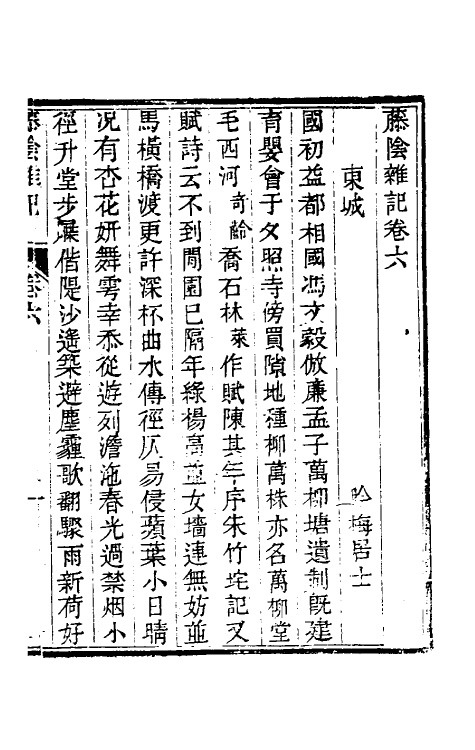 藤陰雜記卷六
吟梅居士
東城
國初益都相國馮文毅倣廉孟子萬柳塘遺制旣建
育嬰會于夕照寺傍買隙地種柳萬株亦名萬柳堂
毛西河奇齡喬石林萊作賦陳其年序朱竹垞記又
賦詩云不到閒園已隔年綠楊高並女墻連無妨並
馬橫橋渡更許深杯曲水傳徑仄易侵蘋葉小日晴
況有杏花妍舞雩幸忝從遊列澹沲春光過禁烟小
徑升堂步屧偕隄沙遙築避塵霾歌翻驟雨新荷好
藤陰雜記
卷六
一